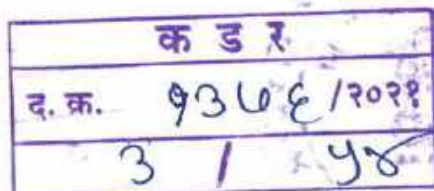 क ड र
द. क्र. १३७६/२०२१
३ / ५४